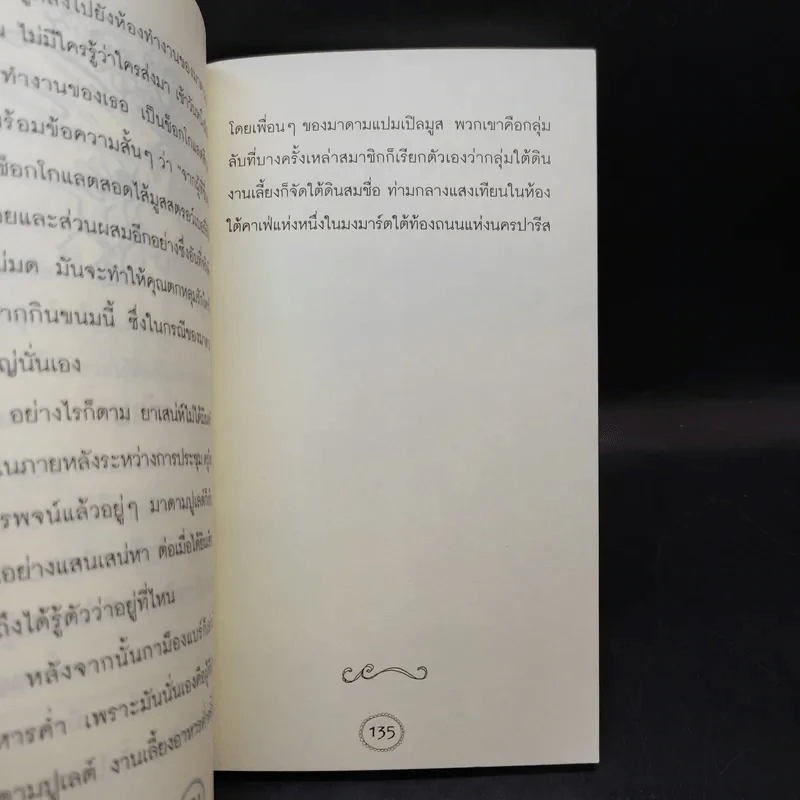 ไปยังห้องทำงานของ
ไม่มีใครรู้ว่าใครส่งมา
ทำงานของเธอ เป็นช็อกโกแลต
ร้อมข้อความสั้นๆ ว่า
ช็อกโกแลตสอดไส้มูสสตรอว์
ยและส่วนผสมอีกอย่างซึ่ง
มด มันจะทำให้คุณตกหลุม
ากกินขนมนี้ ซึ่งในกรณีของ
ญ่นั่นเอง
อย่างไรก็ตาม ยาเสน่ห์ไม่ได้
นภายหลังระหว่างการประชุม
รพจน์แล้วอยู่ๆ มาดามปูเลต์
อย่างแสนเสน่หา ต่อเมื่อได้
ถึงได้รู้ตัวว่าอยู่ที่ไหน
หลังจากนั้นกามีองแบร์
หารค่ำ เพราะมันนั่นเองคือ
ดามปูเลต์ งานเลี้ยงอาหารค่ำ
โดยเพื่อนๆ ของมาดามแปมเปิลมูส พวกเขาคือกลุ่ม
ลับที่บางครั้งเหล่าสมาชิกก็เรียกตัวเองว่ากลุ่มใต้ดิน
งานเลี้ยงก็จัดใต้ดินสมชื่อ ท่ามกลางแสงเทียนในห้อง
ใต้คาเฟ่แห่งหนึ่งในมงมาร์ตใต้ท้องถนนแห่งนครปารีส
135